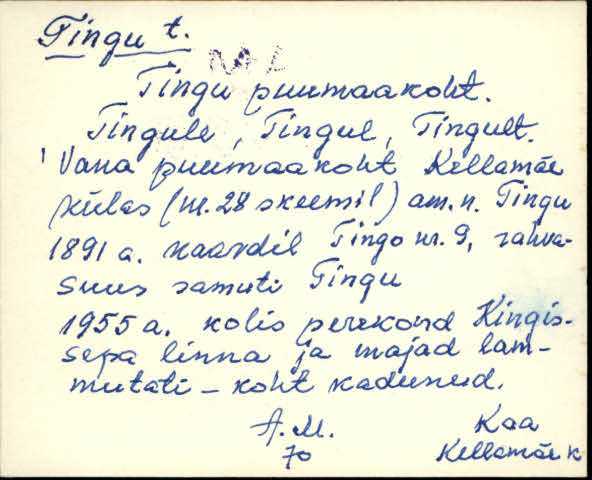 Tingu t.
Tingu puumaakoht.
Tingule, Tingul, Tingult.
Vana puumaakoht Kellamäe
külas (nr. 28 skeemil) am. n. Tingu
1891 a. kaardil Tingo nr. 9, rahva-
suus samuti Tingu
1955 a. kolis perekond Kingis-
sepa linna ja majad lam-
mutati – koht kadunud.
A. M. Kaa
70 Kellamäe k